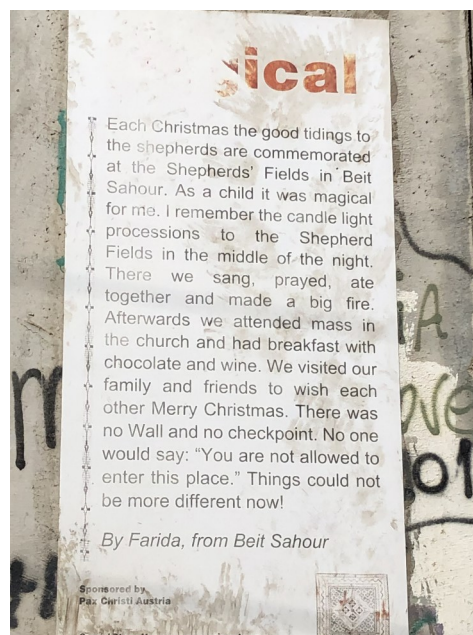 ical
Each Christmas the good tidings to
the shepherds are commemorated
at the Shepherds' Fields in Beit
Sahour. As a child it was magical
for me. I remember the candle light
processions to the Shepherd
Fields in the middle of the night.
There we sang, prayed, ate
together and made a big fire.
Afterwards we attended mass in
the church and had breakfast with
chocolate and wine. We visited our
family and friends to wish each
other Merry Christmas. There was
no Wall and no checkpoint. No one
would say: “You are not allowed to
enter this place.” Things could not
be more different now!
By Farida, from Beit Sahour
Sponsored by
Pax Christi Austria